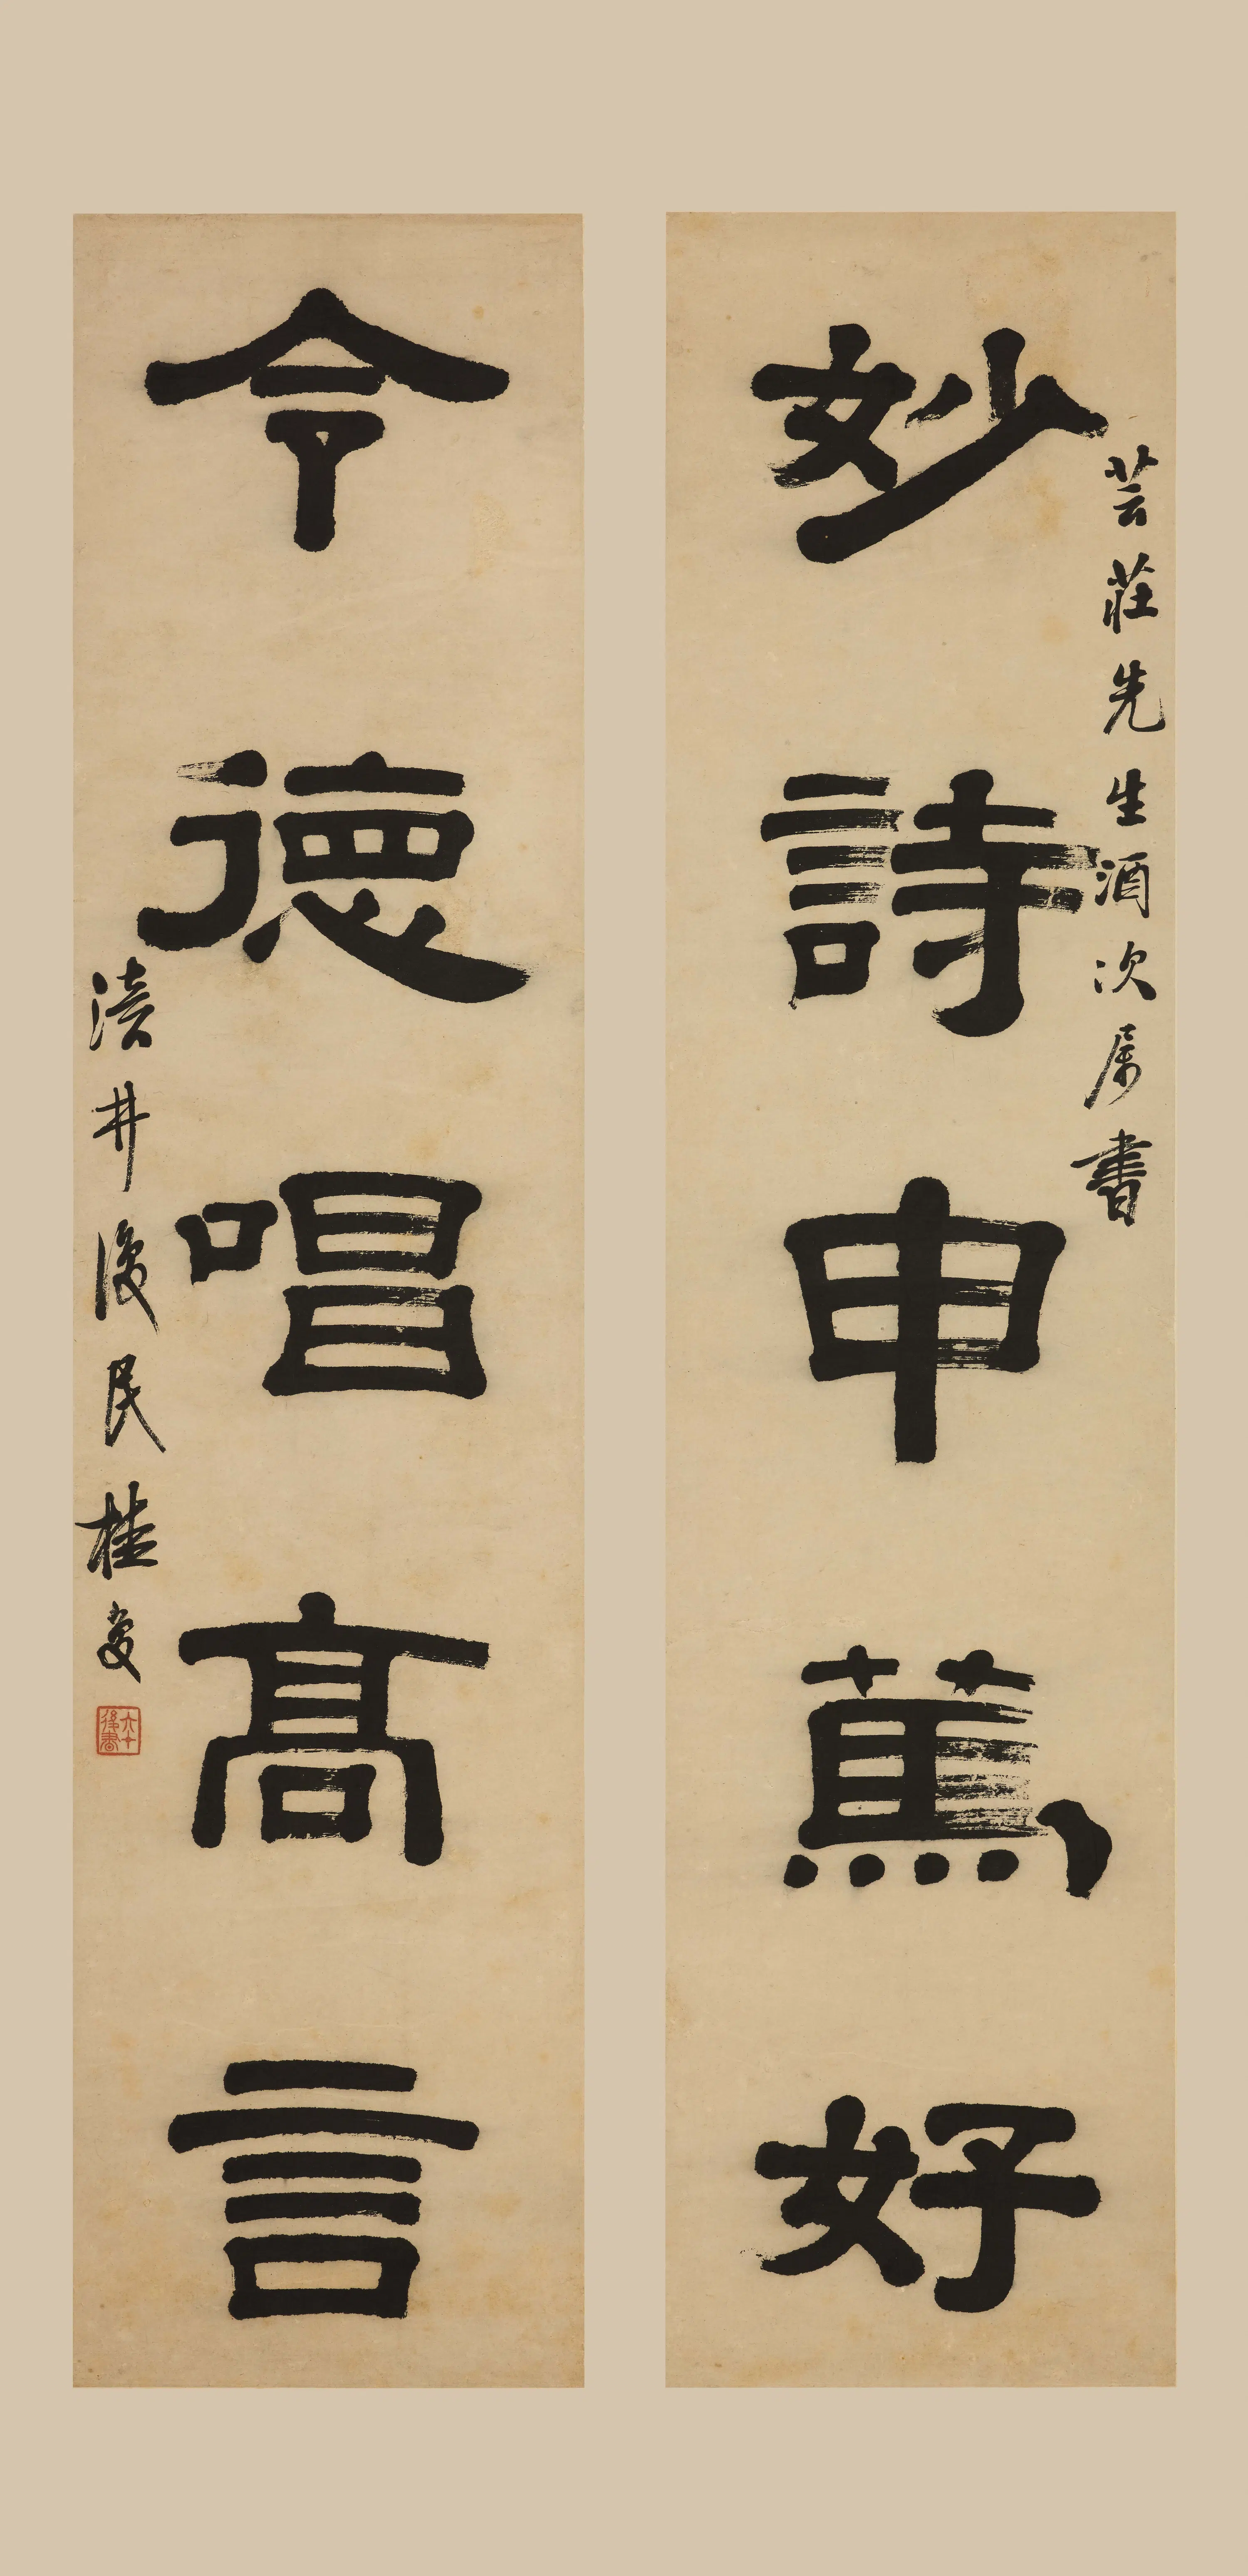 妙詩申篤好
芸莊先生酒次屬書
令德唱高言
瀆井復民桂馥
六十後書